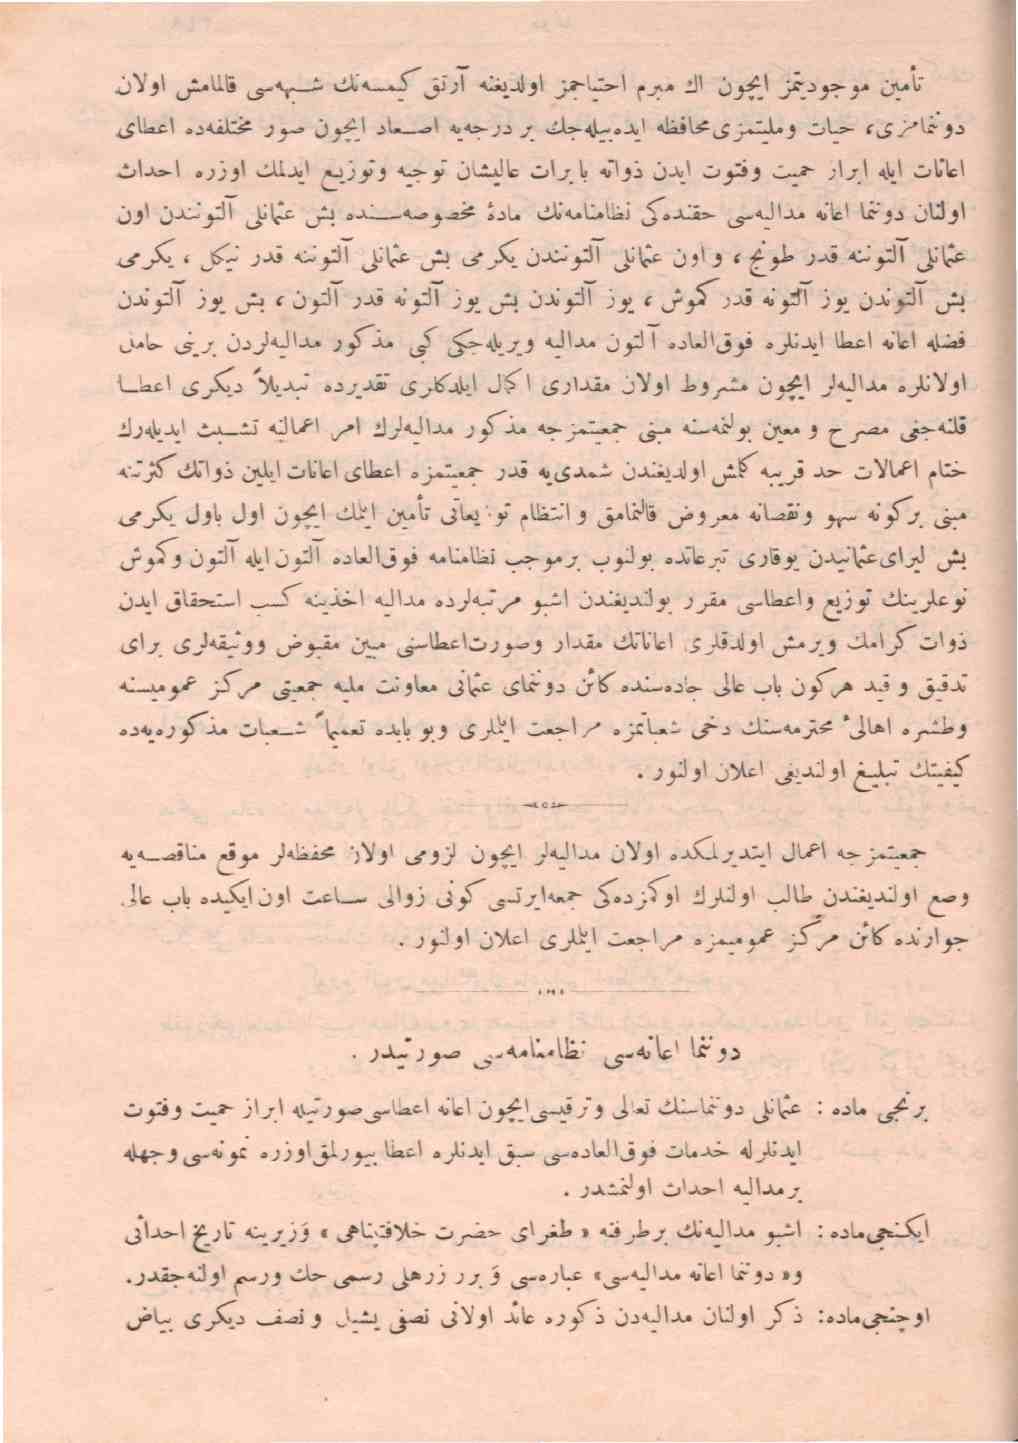 تأمین موجودیتمز ایچون اك مبرم احتیاجمز اولدیغنه آرتق كیمسه‌نك شبهه‌سی قالمامش اولان
دوننمامزی، حیات وملیتمزی محافظه ایده‌بیله‌جك بر درجه‌یه اصعاد ایچون صور مختلفه‌ده اعطای
اعانات ایله ابراز حمیت وفتوت ایدن ذواته بابرات عالیشان توجیه وتوزیع ایدلمك اوزره احداث
اولنان دوننما اعانه مدالیه‌سی حقنده‌كی نظامنامه‌نك مادهٔ مخصوصه‌سنده بش عثمانلی آلتونندن اون
عثمانلی آلتوننه قدر طونج، و اون عثمانلی آلتونندن یكرمی بش عثمانلی آلتوننه قدر نیكل، یكرمی
بش آلتوندن یوز آلتونه قدر كموش، یوز آلتوندن بش یوز آلتونه قدر آلتون، بش یوز آلتوندن
فضله اعانه اعطا ایدنلره فوق‌العاده آلتون مدالیه ویریله‌جكی كبی مذكور مدالیه‌لردن برینی حامل
اولانلره مدالیه‌لر ایچون مشروط اولان مقداری اكمال ایلدكلری تقدیرده تبدیلاً دیكری اعطا
قلنه‌جغی مصرح و معین بولنمه‌سنه مبنی جمعیتمزجه مذكور مدالیه‌لرك امر اعمالنه تشبث ایدیله‌رك
ختام اعمالات حد قریبه كلمش اولدیغندن شمدی‌یه قدر جمعیتمزه اعطای اعانات ایلین ذواتك كثرتنه
مبنی بركونه سهو ونقصانه معروض قالنمامق و انتظام توزیعاتی تأمین ایلمك ایچون اول باول یكرمی
بش لیرای عثمانیدن یوقاری تبرعاتده بولنوب برموجب نظامنامه فوق‌العاده آلتون ایله آلتون وكموش
نوعلرینك توزیع واعطاسی مقرر بولندیغندن اشبو مرتبه‌لرده مدالیه اخذینه كسب استحقاق ایدن
ذوات كرامك ویرمش اولدقلری اعاناتك مقدار وصورت‌اعطاسنی مبین مقبوض ووثیقه‌لری برای
تدقیق و قید هركون باب عالی جاده‌سنده كائن دوننمای عثمانی معاونت ملیه جمعیتی مركز عمومیسنه
وطشره اهالیٔ محترمه‌سنك دخی شعباتمزه مراجعت ایلملری وبو بابده تعمیماً شعبات مذكوره‌یه‌ده
كیفیتك تبلیغ اولندیغی اعلان اولنور .
جمعیتمزجه اعمال ایتدیرلمكده اولان مدالیه‌لر ایچون لزومی اولان محفظه‌لر موقع مناقصه‌یه
وضع اولندیغندن طالب اولنلرك اوكمزده‌كی جمعه‌ایرتسی كونی زوالی ساعت اون‌ایكیده باب عالی
جوارنده كائن مركز عمومیمزه مراجعت ایلملری اعلان اولنور .
دوننما اعانه‌سی نظامنامه‌سی صورتیدر .
برنجی ماده : عثمانلی دوننماسنك تعالی وترقیسی‌ایچون اعانه اعطاسی‌صورتیله ابراز حمیت وفتوت
ایدنلرله خدمات فوق‌العاده‌سی سبق ایدنلره اعطا بیورلمق‌اوزره نمونه‌سی وجهله
برمدالیه احداث اولنمشدر .
ایكنجی‌ماده : اشبو مدالیه‌نك برطرفنه « طغرای حضرت خلافتپناهی » وَزیرینه تاریخ احداثی
و« دوننما اعانه مدالیه‌سی» عباره‌سی وَ برر زرهلی رسمی حك ورسم اولنه‌جقدر.
اوچنجی‌ماده: ذكر اولنان مدالیه‌دن ذكوره عائد اولانی نصفی یشیل و نصف دیكری بیاض